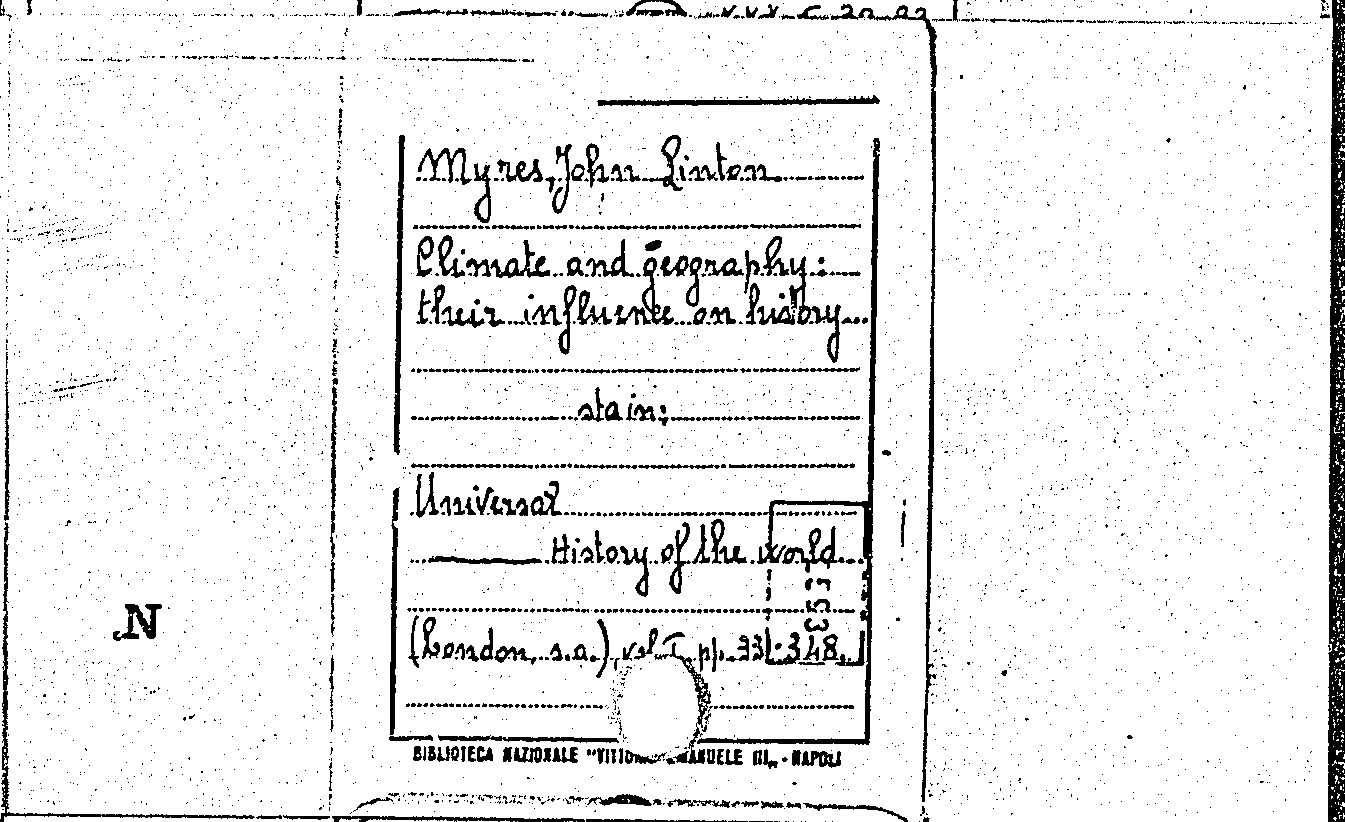 Myres, John Linton
Climate and geography:
their influence on history
sta in:
Universal
History of the world
(London, s.a.), vol. I, pp. 331-348.
N
BIBLIOTECA NAZIONALE "VITTORIO EMANUELE III" - NAPOLI